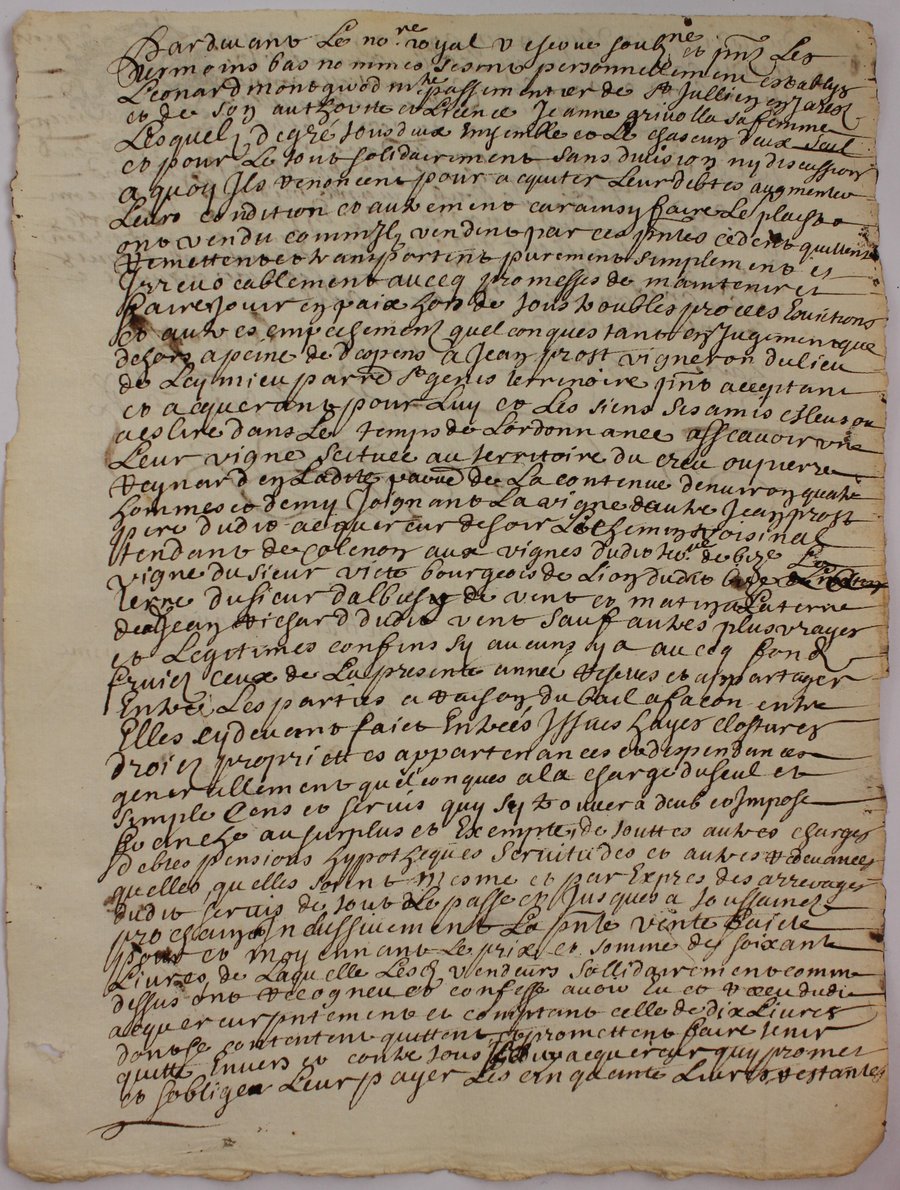 Pardevant Le no.re royal reserve soub.ne et pnt Les
tesmoins bas nommes sesont personnellement establys
Leonard montgivod m.re passementier de St Jullien en Jarez
et de son authorite et licence Jeanne grivolla sa femme
Lesquelz degré tous deux Ensemble et Le chascun deux seul
et pour Le tout sollidairement sans division ny discussion
a quoy Ils renoncent pour acquiter Leur debtes augmenter
Leurs condition et autrement car ainsy faire Le plaist
ont vendu comm Ilz vendent par ces pntes cedent quittent
remettent et transportent purement simplement et
Irrevocablement avecq promesses de maintenir et
faire Jouir en paix hors de tous troubles proces Evictions
et autres empeschement quelconques tant en Jugement que
dehors a peine de despens a Jean prost vigneron du lieu
de Leymieu parr.e St genis terrenoire pnt acceptant
et acquerant pour Luy et Les siens ses amis esleus ou
a eslire dans Le temps de Lordonnance asscavoir une
Leur vigne scituée au territoire du creu ou pierre
reynard en Ladite parr.e de La contenue denviron quatre
hommes et demy Joignant La vigne dautre Jean prost
pere dudit acquereur de soir Le chemin voisinal
tendant de Colenon aux vignes dudit terr.re de bize La
vigne du sieur viette bourgeois de Lion dudit bize
terre du sieur dalboesy de vent et matin La terre
de Jean richard dudit vent sauf autres plus vrayes
et Legitimes confins sy aucuns y a avecq fond
fruicz ceux de La presente année reserves et a partager
Entre Les parties a raison du bail a facon entre
Elles cy devant faict Entrées Issues hayes clostures
droicz proprietes appartenances et despendances
generallement quelconques a la charge du seul et
simple Cens et servis quy sy trouvera deub et Impose
franche au surplus et Exempte de touttes autres charges
debtes pensions hypotheques servitudes et autres redevances
quelles quelles soient mesme et par Expres des arrerages
dudit servis de tout Le passe et Jusques a toussainctz
prochain Inclusivement La pnte vente faicte
pour et moyennant Le prix et somme de soixante
Livres de Laquelle Lesd vendeurs sollidairement comme
dessus ont recogneu et confesse avoir Eu et receu dudit
acquereur pntement et comptant celle de dix Livres
dont se contentent quittent et promettent faire tenir
quitte Envers et contre tous acquereur quy promet
et soblige Leur payer Les cinquante Livres restantes